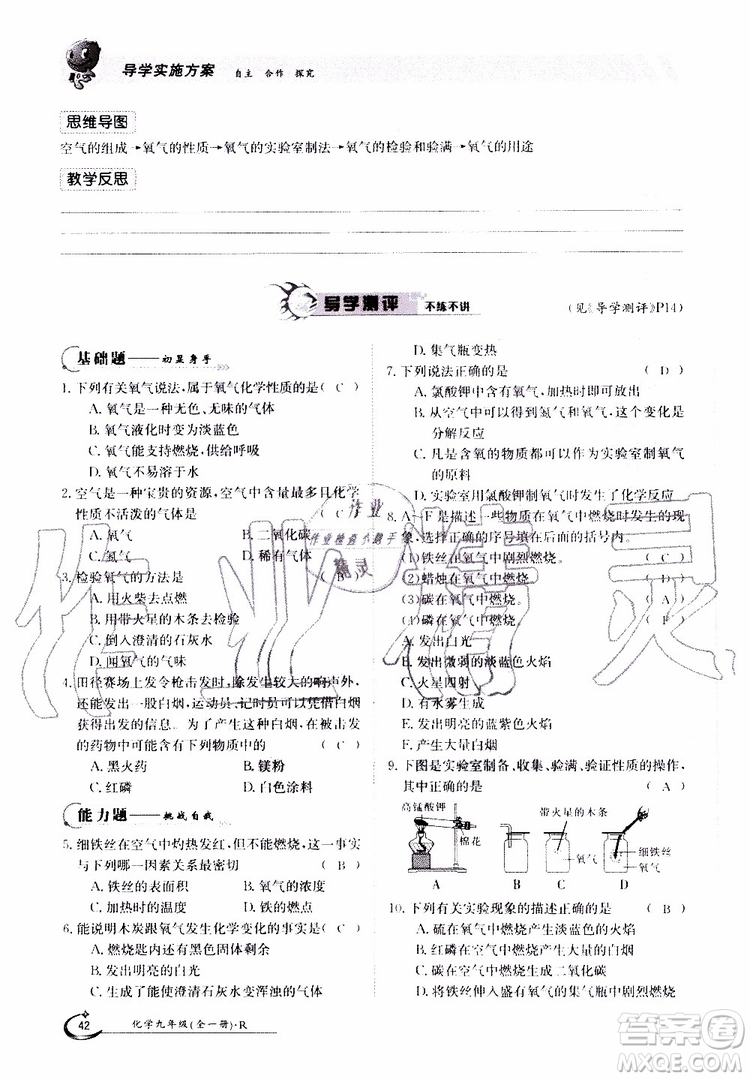 导学实施方案 自主 合作 探究
思维导图
空气的组成→氧气的性质→氧气的实验室制法→氧气的检验和验满→氧气的用途
教学反思
导学测评 不练不讲 (见《导学测评》P14)
基础题——初显身手
1. 下列有关氧气说法,属于氧气化学性质的是( C )
A. 氧气是一种无色、无味的气体
B. 氧气液化时变为淡蓝色
C. 氧气能支持燃烧,供给呼吸
D. 氧气不易溶于水
2. 空气是一种宝贵的资源,空气中含量最多且化学
性质不活泼的气体是 ( C )
A. 氧气 B. 二氧化碳
C. 氮气 D. 稀有气体
3. 检验氧气的方法是 ( B )
A. 用火柴去点燃
B. 用带火星的木条去检验
C. 倒入澄清的石灰水
D. 闻氧气的气味
4. 田径赛场上发令枪击发时,除发生较大的响声外,
还能产生大量的白烟。运动员、记时员可以依据白烟
获得出发的信息。为了产生这种白烟,子弹击发
的药物中可能含有下列物质中的 ( C )
A. 黑火药 B. 镁粉
C. 红磷 D. 白色涂料
能力题——挑战自我
5. 细铁丝在空气中灼热发红,但不能燃烧,这一事实
与下列哪一因素关系最密切 ( B )
A. 铁丝的表面积 B. 氧气的浓度
C. 加热时的温度 D. 铁丝的燃点
6. 能说明木炭跟氧气发生化学变化的事实是( C )
A. 燃烧匙内还有黑色固体剩余
B. 发出明亮的黄光
C. 能使澄清石灰水变浑浊的气体
D. 集气瓶变热
7. 下列说法正确的是 ( D )
A. 氯酸钾中含有氧气,加热时即放出
B. 从空气中可以得到氮气和氧气,这个变化是
分解反应
C. 凡是含氧的物质都可以做为实验室制氧气
的原料
D. 实验室用氯酸钾制氧气时发生化学反应
8. A~F是描述一些物质在氧气中燃烧时发生的现
象,选择正确的序号填在后面的括号内。
(1)铁丝在氧气中剧烈燃烧。 ( C )
(2)蜡烛在氧气中燃烧。
(3)碳在氧气中燃烧。 ( A )
(4)红磷在氧气中燃烧。 ( F )
A. 发出白光
B. 发出微弱的淡蓝色火焰
C. 火星四射
D. 有水雾生成
E. 发出明亮的蓝紫色火焰
F. 产生大量白烟
9. 下图是实验室制备、收集、验满、验证性质的操作,
其中正确的是 ( A )
高锰酸钾 棉花 带火星的木条 氧气 细铁丝 氧气
A B C D
10. 下列有关实验现象的描述正确的是 ( B )
A. 硫在氧气中燃烧产生淡蓝色的火焰
B. 红磷在氧气中燃烧产生大量的白烟
C. 碳在氧气中燃烧生成二氧化碳
D. 将铁丝伸入盛有氧气的集气瓶中剧烈燃烧
42 化学九年级(全一册)·R
作业精灵
作业
作业检查小助手
精灵
答案圈
MXQE.COM